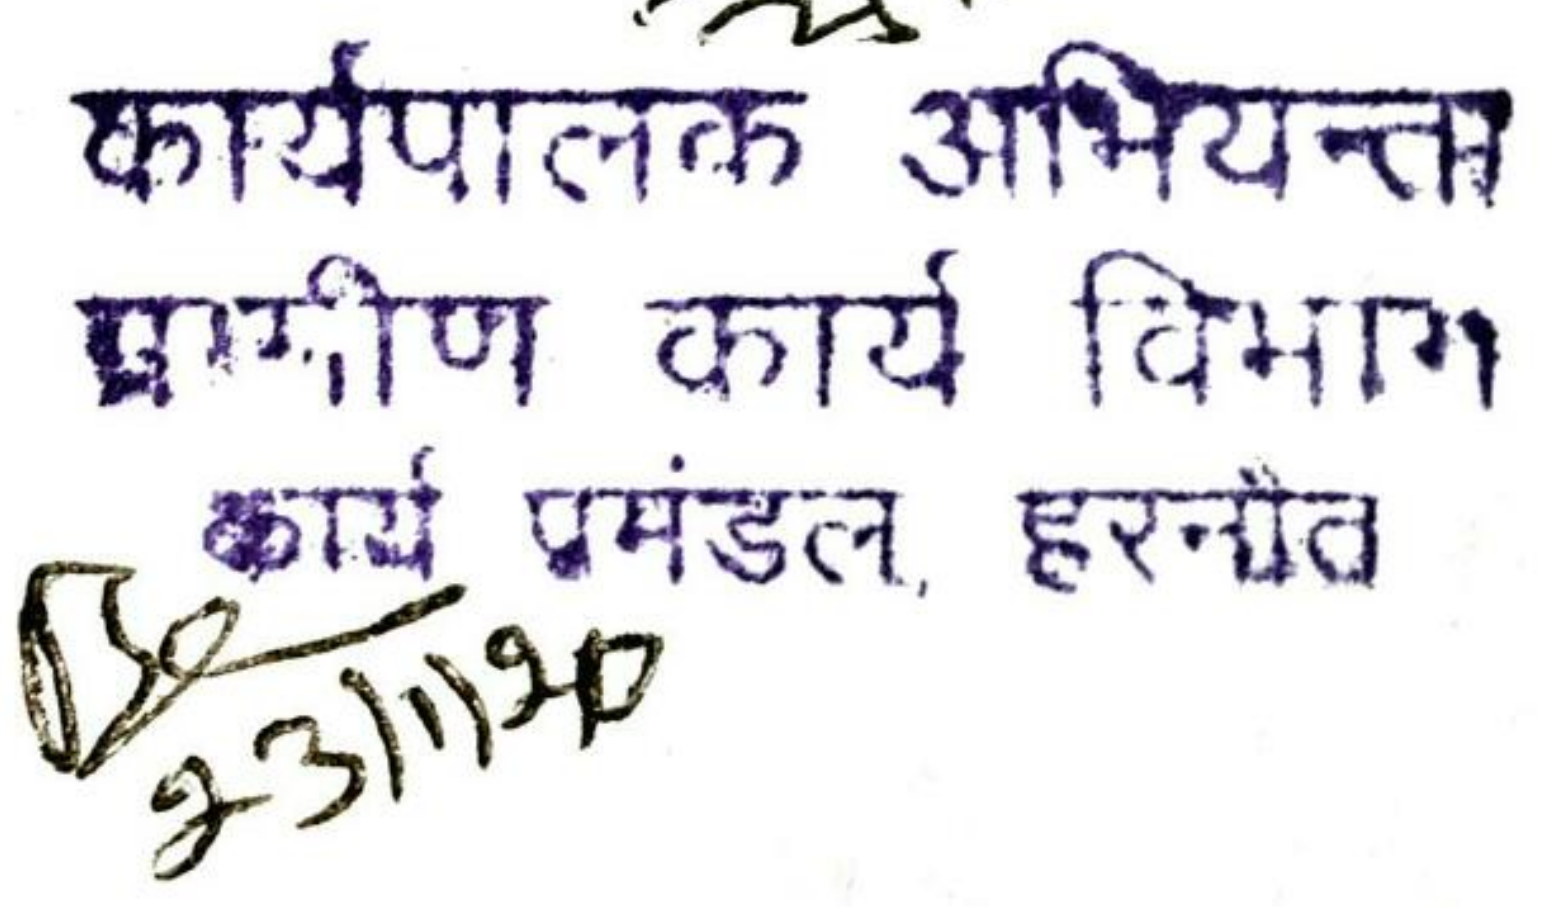 कार्यपालक अभियन्ता
ग्रामीण कार्य विभाग
कार्य प्रमंडल, हरनौत
23/1/20